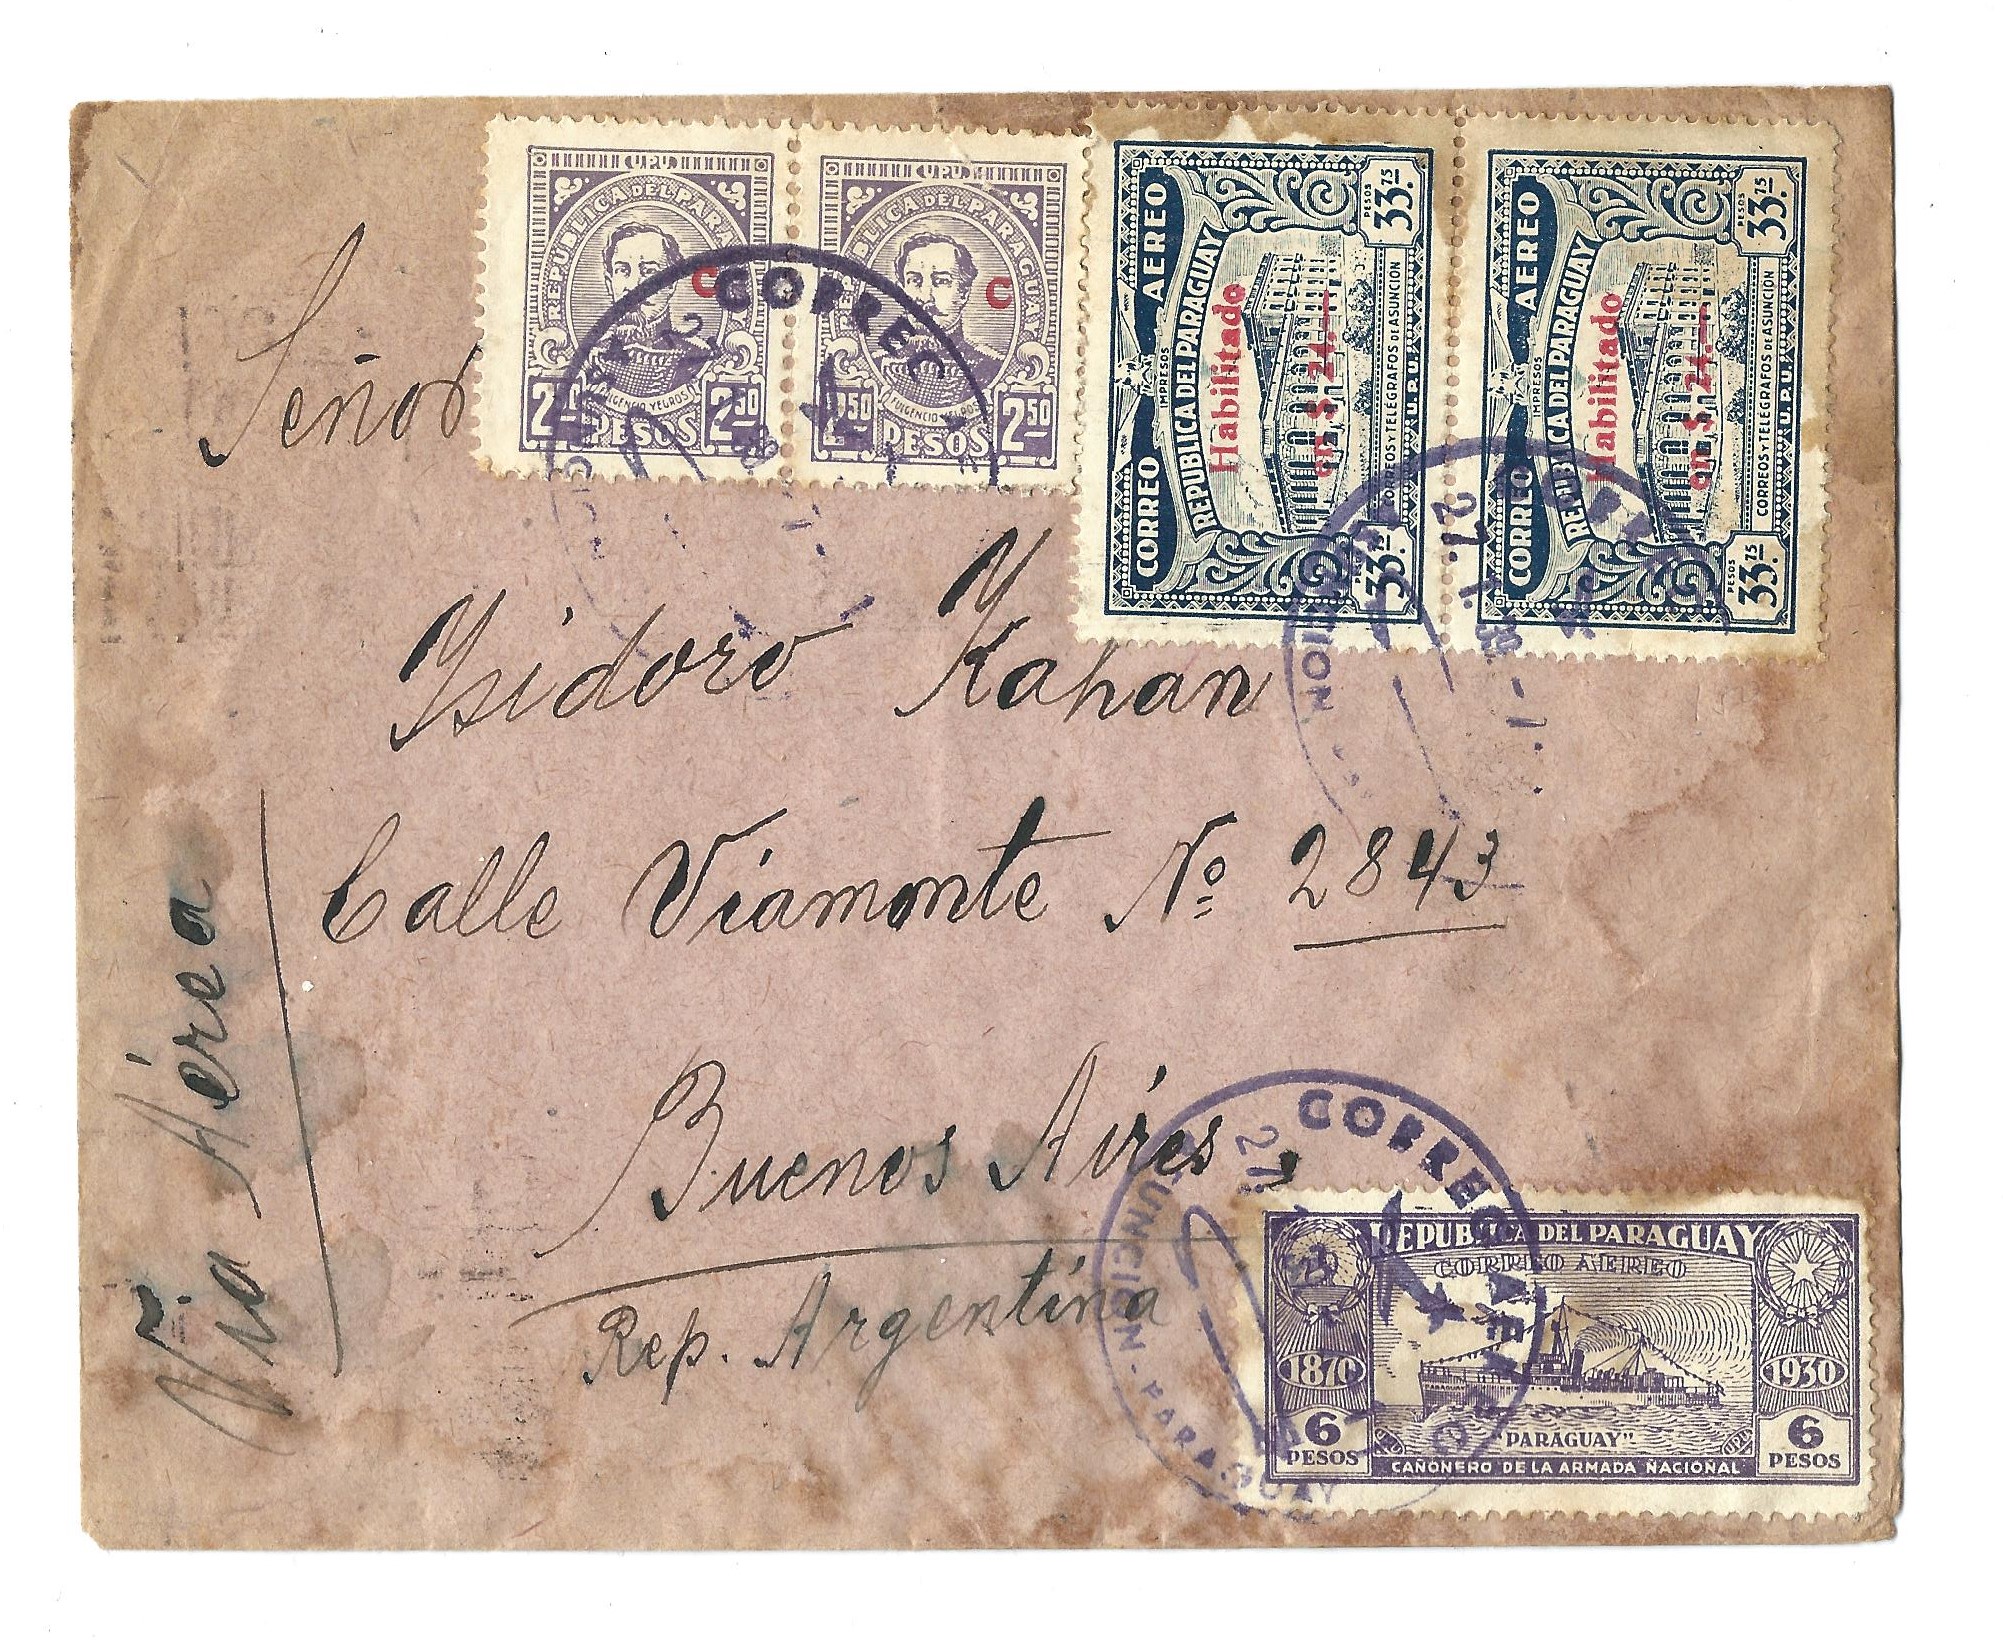 U.P.U.
REPUBLICA DEL PARA
C
FULGENCIO YEGROS
2.50
PESOS
2.50
U.P.U.
REPUBLICA DEL PARAGUAY
C
FULGENCIO YEGROS
2.50
PESOS
2.50
CORREO AEREO
IMPRESOS
REPUBLICA DEL PARAGUAY
Habilitado
en $ 24.—
CORREOS Y TELEGRAFOS DE ASUNCION
U.P.U.
PESOS
33.75
PESOS
33.75
CORREO AEREO
IMPRESOS
REPUBLICA DEL PARAGUAY
Habilitado
en $ 24.—
CORREOS Y TELEGRAFOS DE ASUNCION
U.P.U.
PESOS
33.75
PESOS
33.75
CORREO
27.
Señor
Isidoro Kahan
Calle Viamonte Nº 2843
Buenos Aires
Rep. Argentina
Vía Aérea
CORREO AEREO
ASUNCION - PARAGUAY
REPUBLICA DEL PARAGUAY
CORREO AEREO
1870
1930
PARAGUAY
6
PESOS
"PARAGUAY"
UPU
UPU
6
PESOS
CAÑONERO DE LA ARMADA NACIONAL